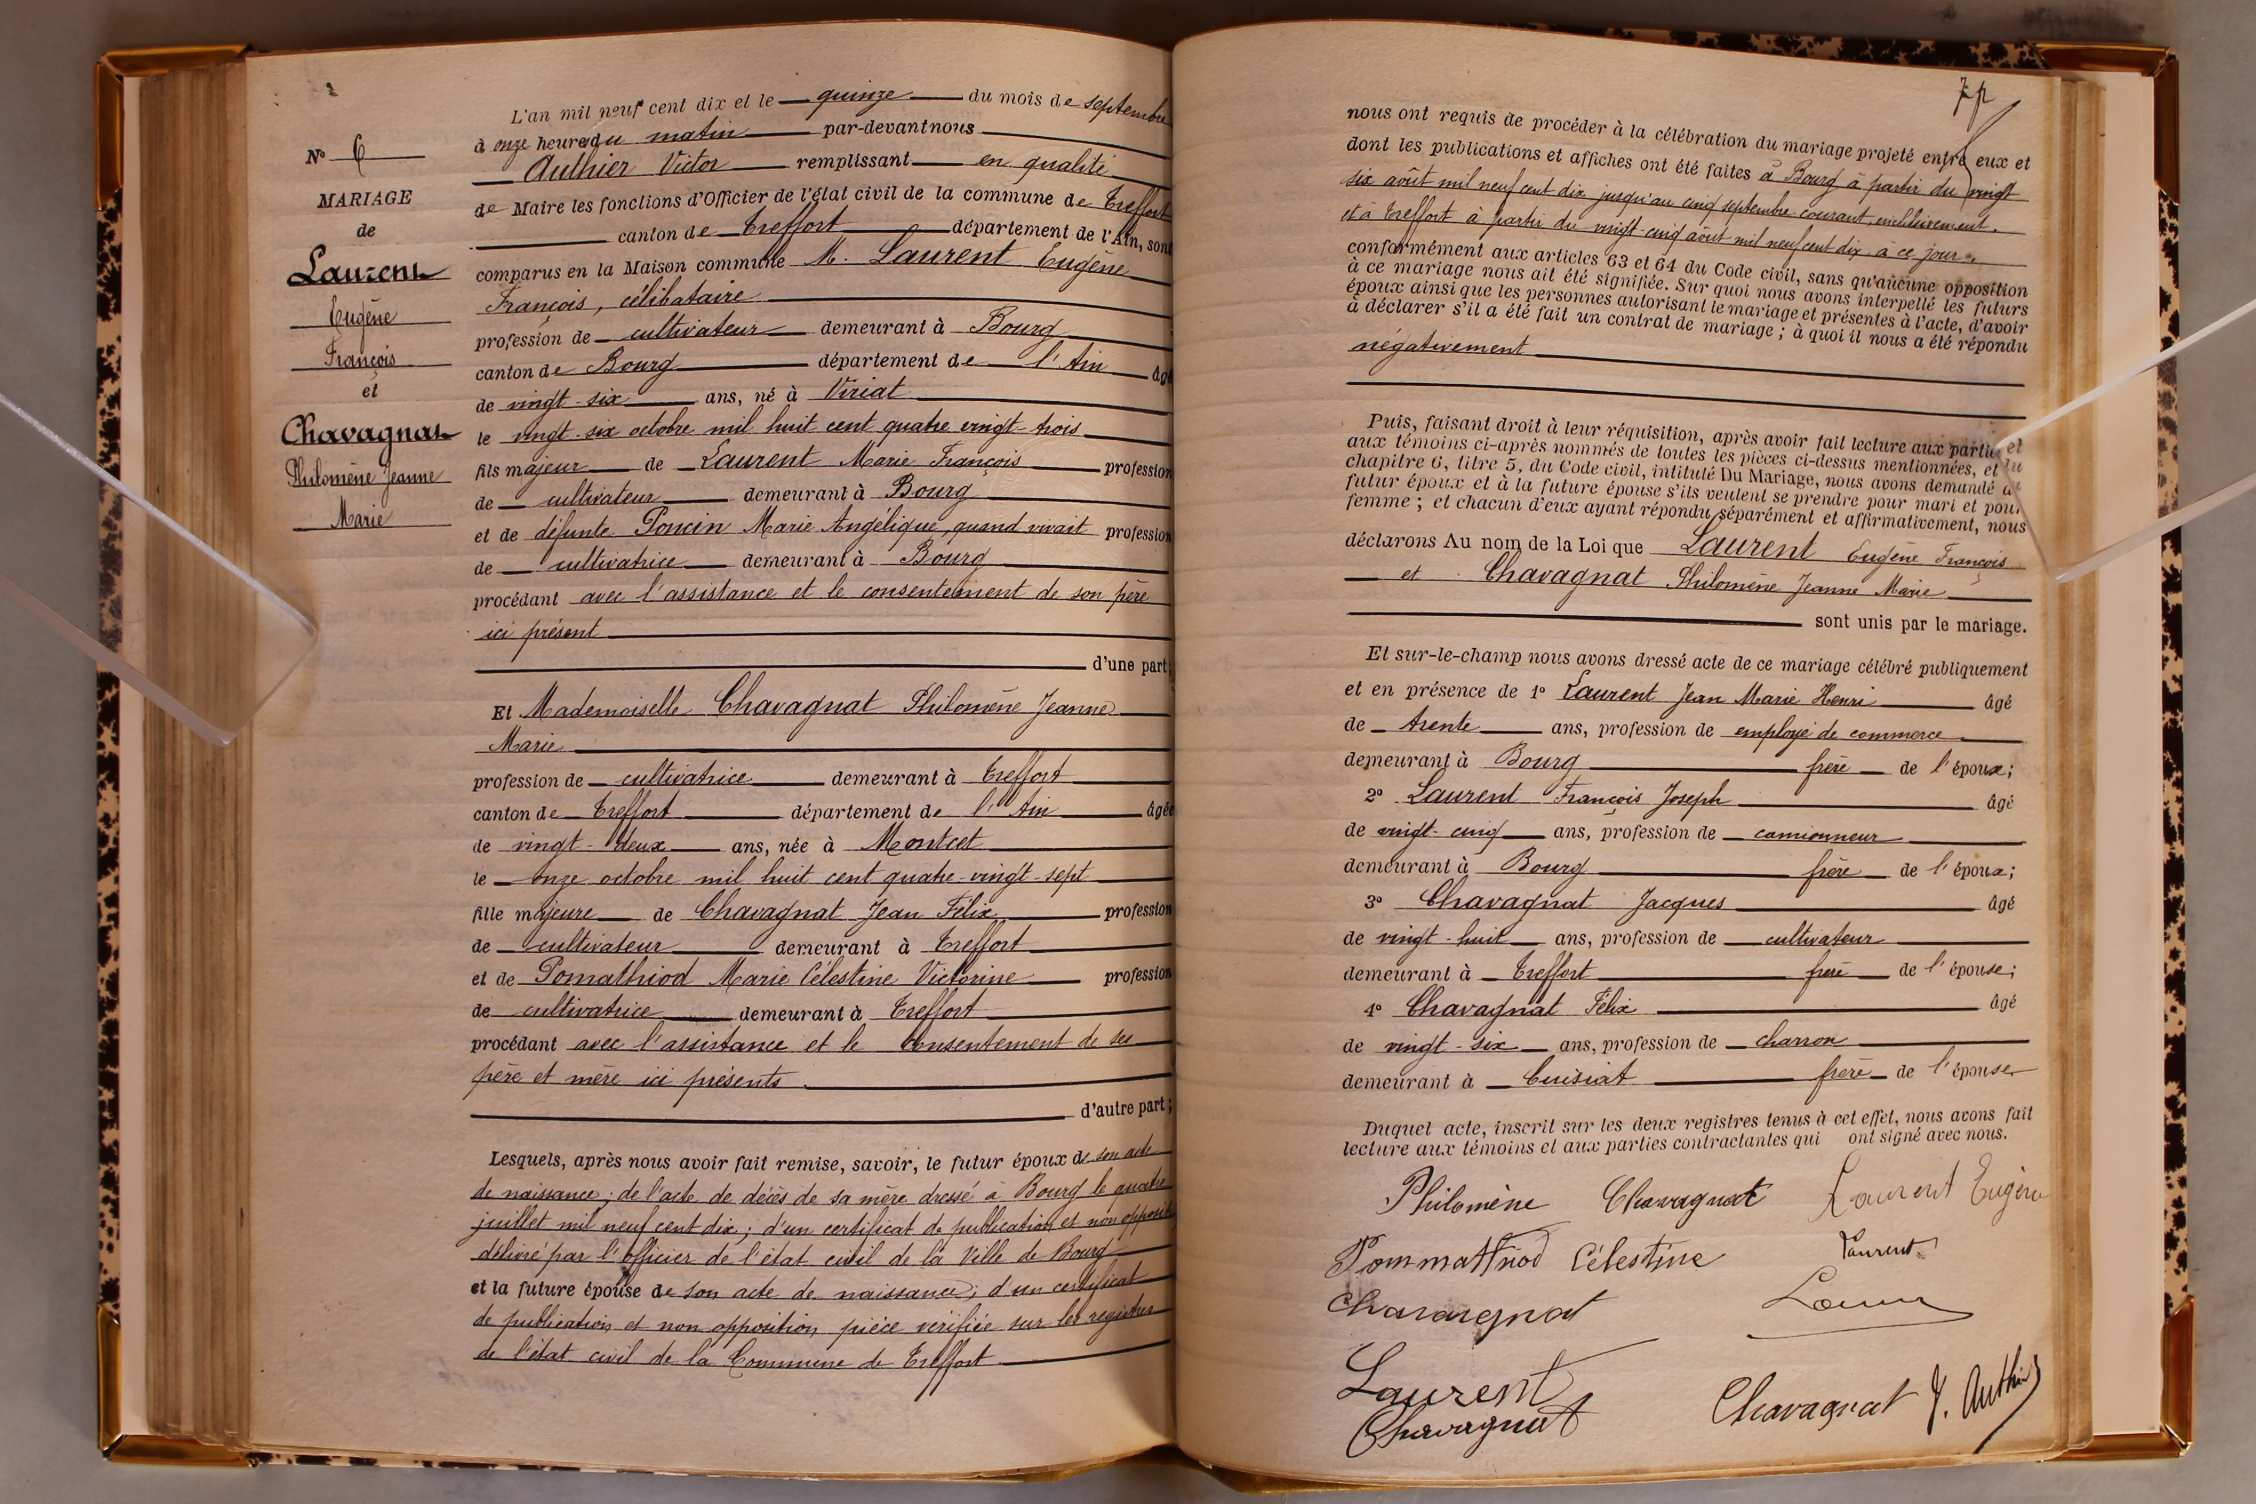 Nº 6
MARIAGE
de
Laurent
Eugène
François
et
Chavagnat
Philomène Jeanne
Marie
L'an mil neuf cent dix et le quinze du mois de septembre
à onze heures du matin par-devant nous
Authier Victor remplissant en qualité
de Maire les fonctions d'Officier de l'état civil de la commune de Treffort
canton de Treffort département de l'Ain, sont
comparus en la Maison commune M. Laurent Eugène
François, célibataire
profession de cultivateur demeurant à Bourg
canton de Bourg département de l'Ain âgé
de vingt-six ans, né à Viriat
le vingt-six octobre mil huit cent quatre vingt-trois
fils majeur de Laurent Marie François profession
de cultivateur demeurant à Bourg
et de défunte Poncin Marie Angélique, quand vivait profession
de cultivatrice demeurant à Bourg
procédant avec l'assistance et le consentement de son père
ici présent
d'une part;
Et Mademoiselle Chavagnat Philomène Jeanne
Marie
profession de cultivatrice demeurant à Treffort
canton de Treffort département de l'Ain âgée
de vingt-deux ans, née à Montcet
le onze octobre mil huit cent quatre-vingt-sept
fille majeure de Chavagnat Jean Félix profession
de cultivateur demeurant à Treffort
et de Pomathiod Marie Célestine Victorine profession
de cultivatrice demeurant à Treffort
procédant avec l'assistance et le consentement de ses
père et mère ici présents
d'autre part;
Lesquels, après nous avoir fait remise, savoir, le futur époux de son acte
de naissance; de l'acte de décès de sa mère dressé à Bourg le quatre
juillet mil neuf cent dix; d'un certificat de publication et non opposition
délivré par l'officier de l'état civil de la Ville de Bourg
et la future épouse de son acte de naissance; d'un certificat
de publication et non opposition pièce vérifiée sur les registres
de l'état civil de la Commune de Treffort
nous ont requis de procéder à la célébration du mariage projeté entre eux et
dont les publications et affiches ont été faites à Bourg à partir du vingt
six août mil neuf cent dix jusqu'au cinq septembre courant, exclusivement.
et à Treffort à partir du vingt-cinq août mil neuf cent dix à ce jour
conformément aux articles 63 et 64 du Code civil, sans qu'aucune opposition
à ce mariage nous ait été signifiée. Sur quoi nous avons interpellé les futurs
époux ainsi que les personnes autorisant le mariage et présentes à l'acte, d'avoir
à déclarer s'il a été fait un contrat de mariage; à quoi il nous a été répondu
négativement
Puis, faisant droit à leur réquisition, après avoir fait lecture aux parties et
aux témoins ci-après nommés de toutes les pièces ci-dessus mentionnées, et du
chapitre 6, titre 5, du Code civil, intitulé Du Mariage, nous avons demandé au
futur époux et à la future épouse s'ils veulent se prendre pour mari et pour
femme; et chacun d'eux ayant répondu séparément et affirmativement, nous
déclarons Au nom de la Loi que Laurent Eugène François
et Chavagnat Philomène Jeanne Marie
sont unis par le mariage.
Et sur-le-champ nous avons dressé acte de ce mariage célébré publiquement
et en présence de 1º Laurent Jean Marie Henri âgé
de trente ans, profession de employé de commerce
demeurant à Bourg frère de l'époux;
2º Laurent François Joseph âgé
de vingt-cinq ans, profession de camionneur
demeurant à Bourg frère de l'époux;
3º Chavagnat Jacques âgé
de vingt-huit ans, profession de cultivateur
demeurant à Treffort frère de l'épouse;
4º Chavagnat Félix âgé
de vingt-six ans, profession de charron
demeurant à Cuisiat frère de l'épouse
Duquel acte, inscrit sur les deux registres tenus à cet effet, nous avons fait
lecture aux témoins et aux parties contractantes qui ont signé avec nous.
Philomène Chavagnat Laurent Eugène
Pommathiod Célestine Laurent
Chavavgnat
Laurent
Chavagnat
Chavagnat V. Authier